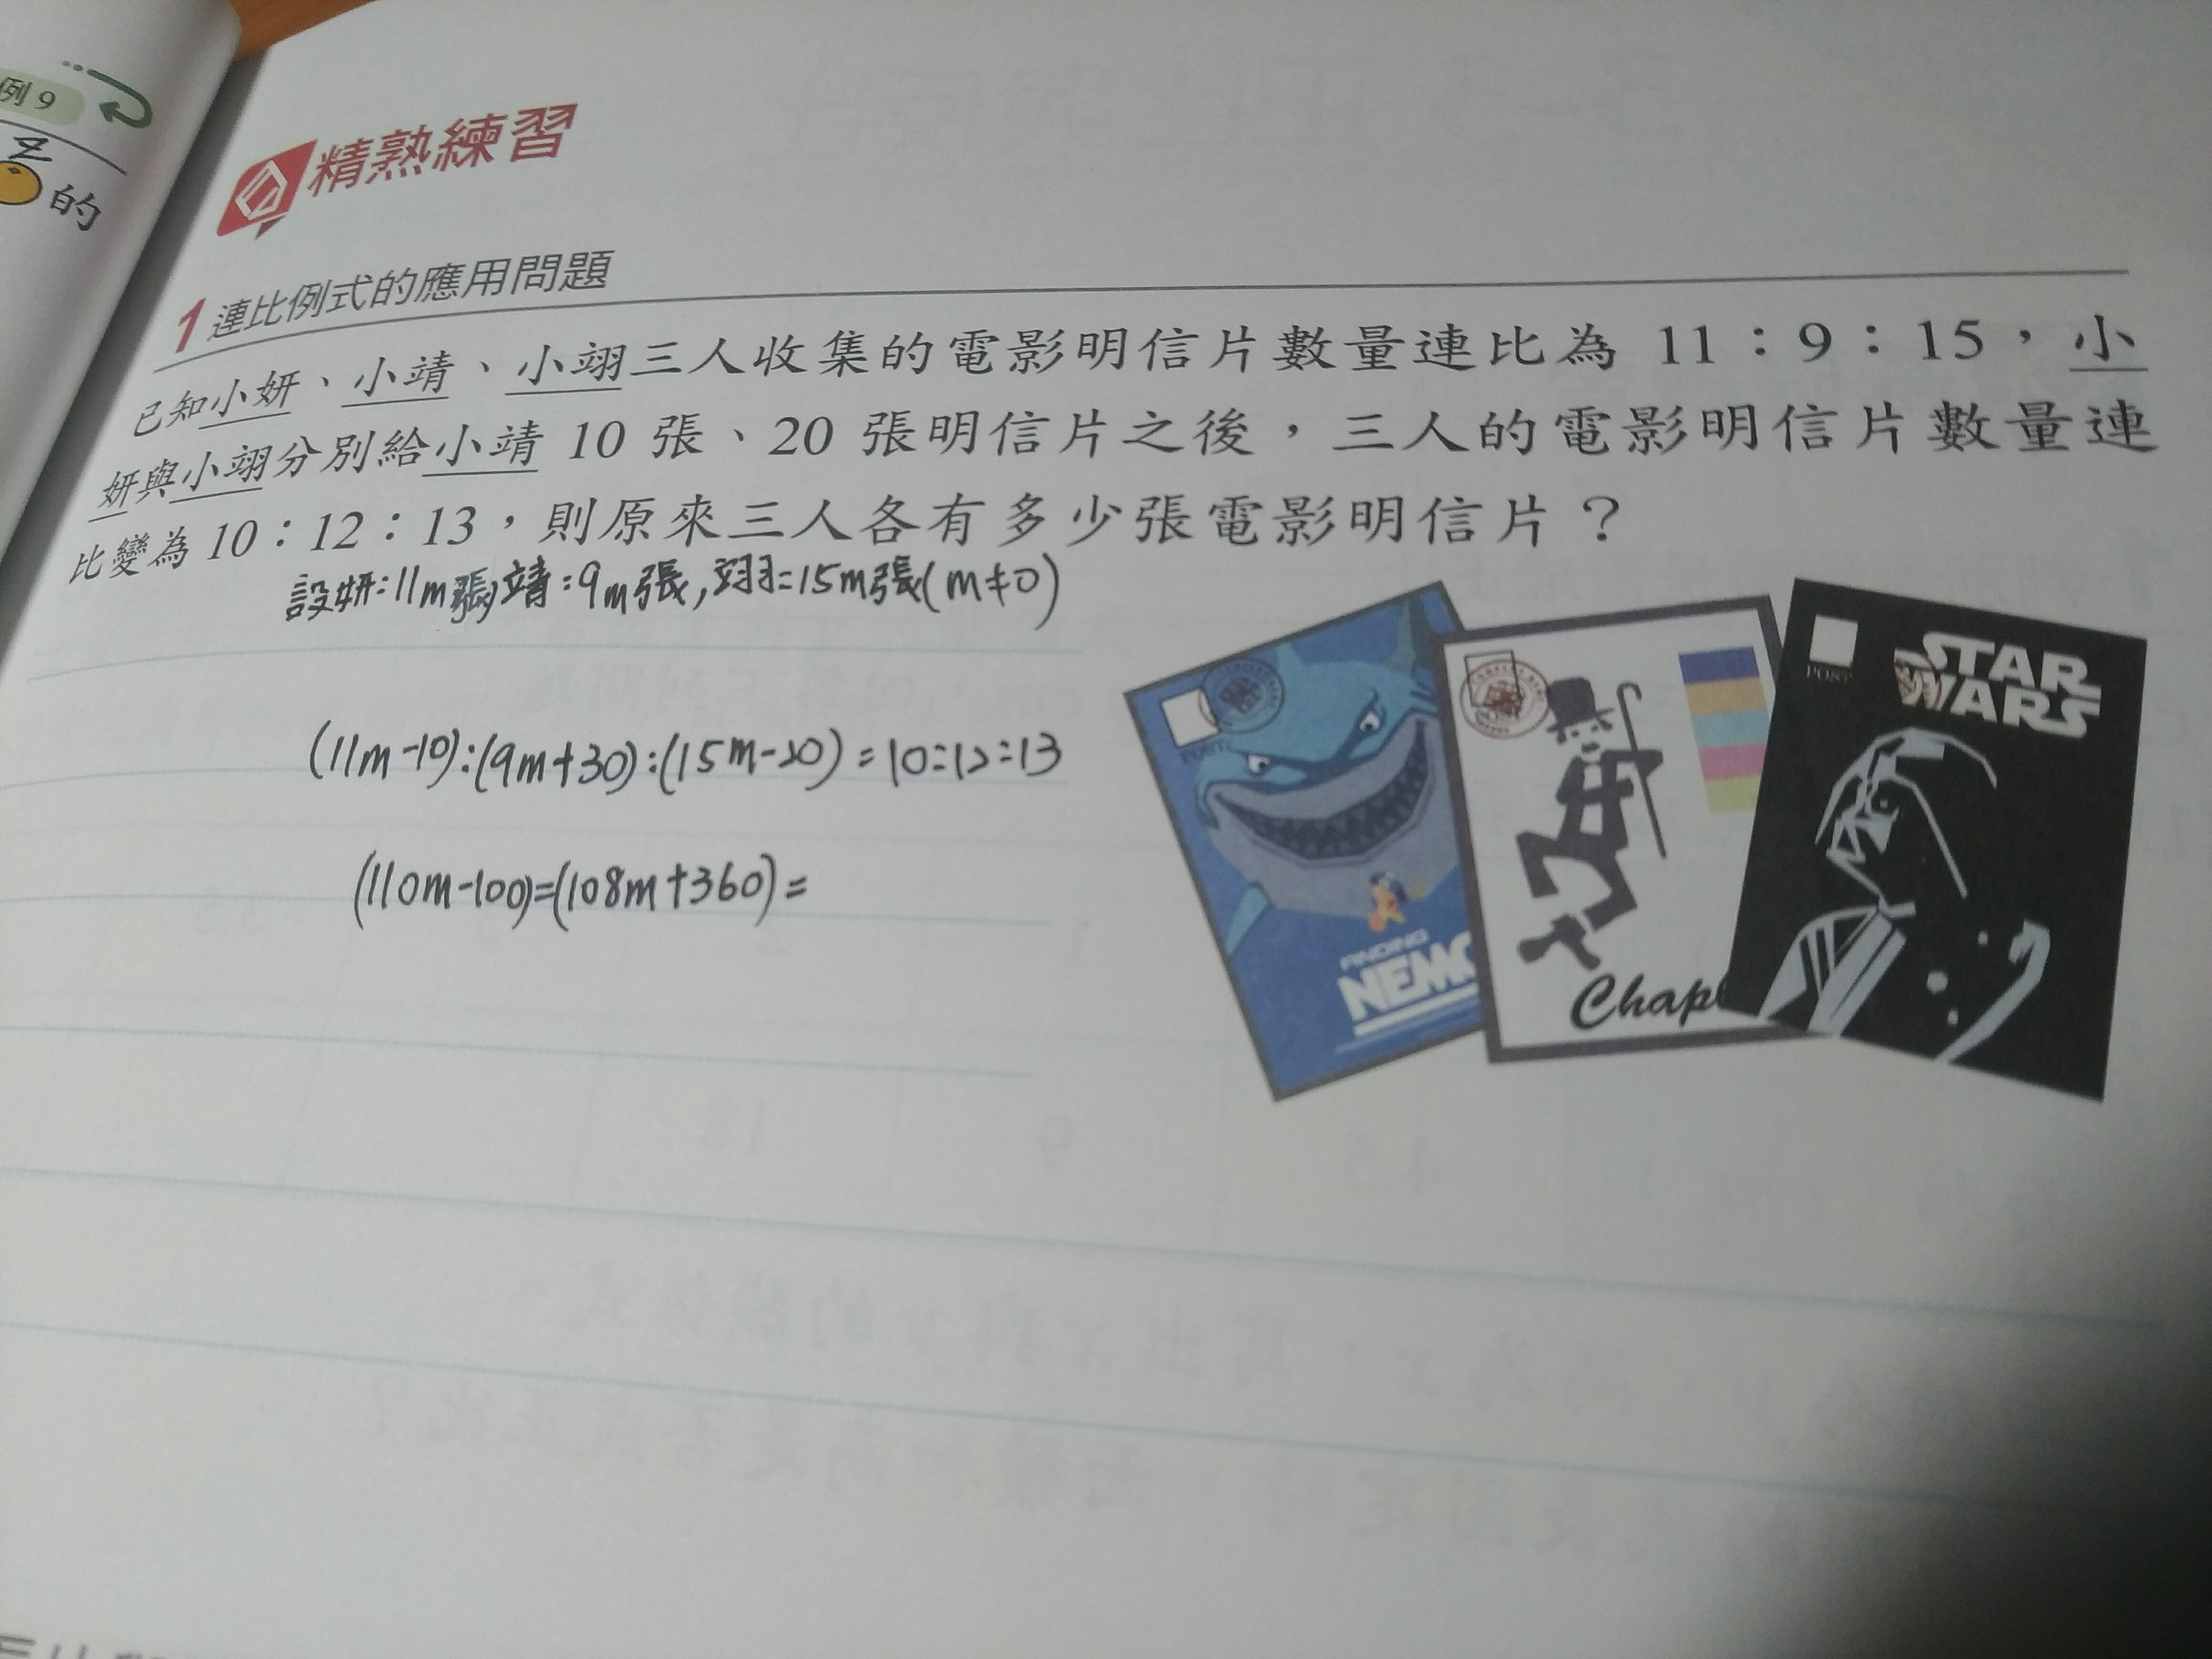 例 9
的
精熟練習
1 連比例式的應用問題
已知小妍、小靖、小翊三人收集的電影明信片數量連比為 11：9：15，小
妍與小翊分別給小靖 10 張、20 張明信片之後，三人的電影明信片數量連
比變為 10：12：13，則原來三人各有多少張電影明信片？
設妍:11m張,靖:9m張,翊=15m張(m≠0)
(11m-10):(9m+30):(15m-20)=10:12:13
(110m-100)=(108m+360)=
POST
FINDING
NEMO
Chap
POST
STAR
WARS